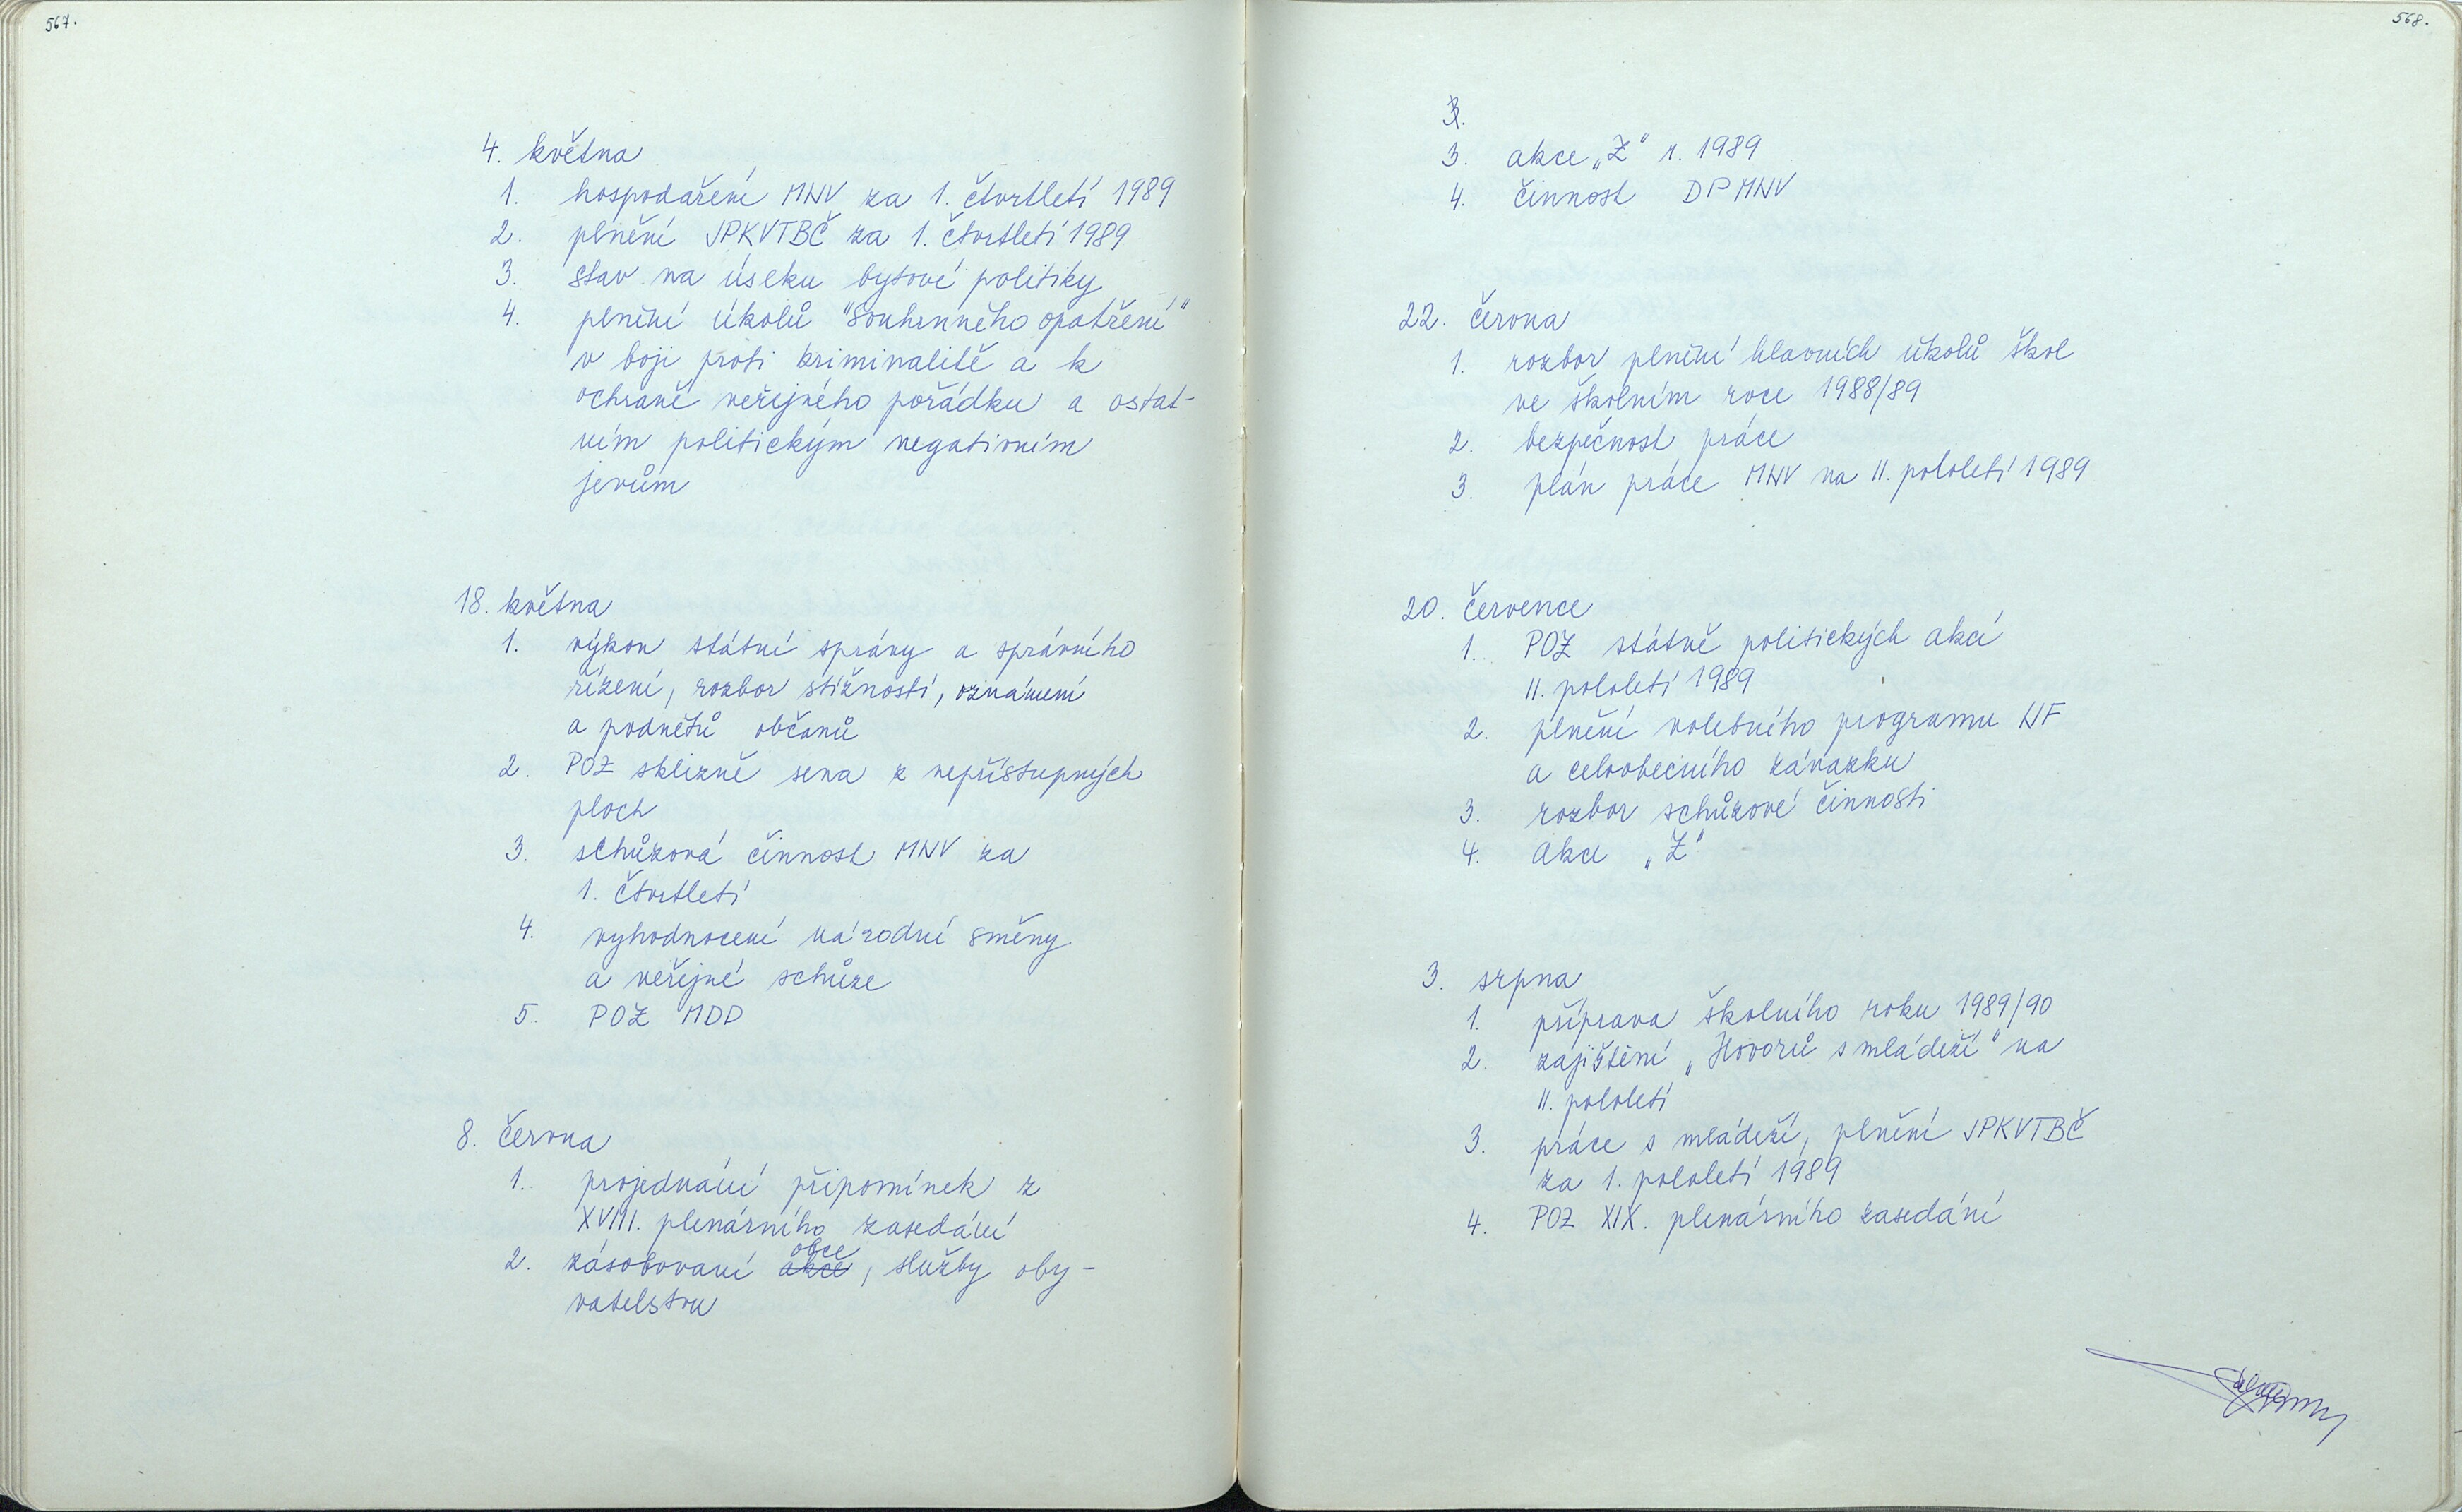 567.
4. května
1. hospodaření MNV za 1. čtvrtletí 1989
2. plnění JPKVTBČ za 1. čtvrtletí 1989
3. stav na úseku bytové politiky
4. plnění úkolů "Souhrnného opatření"
v boji proti kriminalitě a k
ochraně veřejného pořádku a ostat-
ním politickým negativním
jevům
18. května
1. výkon státní správy a správního
řízení, rozbor stížností, oznámení
a podnětů občanů
2. POZ sklizně sena z nepřístupných
ploch
3. schůzová činnost MNV za
1. čtvrtletí
4. vyhodnocení národní směny
a veřejné schůze
5. POZ MDD
8. června
1. projednání připomínek z
XVIII. plenárního zasedání
2. zásobovaní akce obce, služby oby-
vatelstvu
568.
3.
3. akce „Z" r. 1989
4. činnost DPMNV
22. června
1. rozbor plnění hlavních úkolů škol
ve školním roce 1988/89
2. bezpečnost práce
3. plán práce MNV na II. pololetí 1989
20. července
1. POZ státně politických akcí
II. pololetí 1989
2. plnění volebního programu NF
a celoobecního závazku
3. rozbor schůzové činnosti
4. akce „Z"
3. srpna
1. příprava školního roku 1989/90
2. zajištění „Hovorů s mládeží" na
II. pololetí
3. práce s mládeží, plnění JPKVTBČ
za 1. pololetí 1989
4. POZ XIX. plenárního zasedání